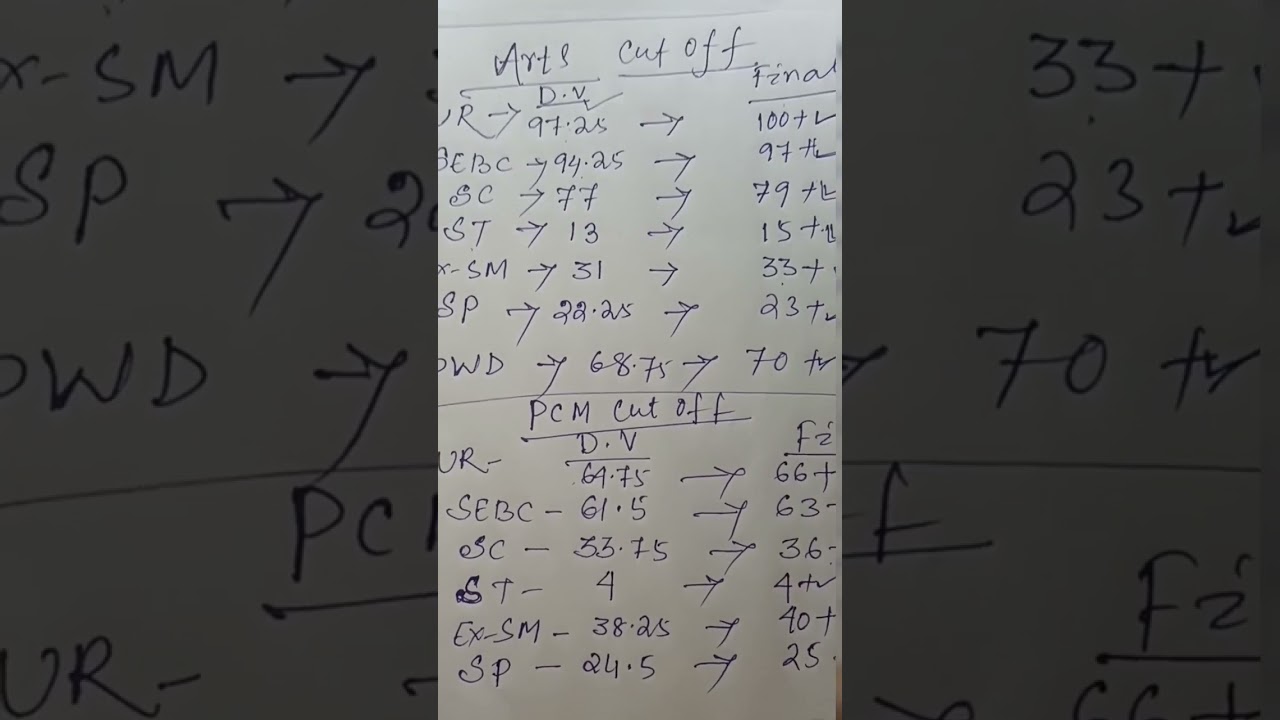 Arts Cut Off
D.V Final
UR → 97.25 → 100+
SEBC → 94.25 → 97+
SC → 77 → 79+
ST → 13 → 15+
x-SM → 31 → 33+
SP → 22.25 → 23+
PWD → 68.75 → 70+
PCM Cut Off
D.V Fi
UR- 64.75 → 66+
SEBC - 61.5 → 63-
SC - 33.75 → 36-
ST - 4 → 4+
Ex-SM - 38.25 → 40+
SP - 24.5 → 25